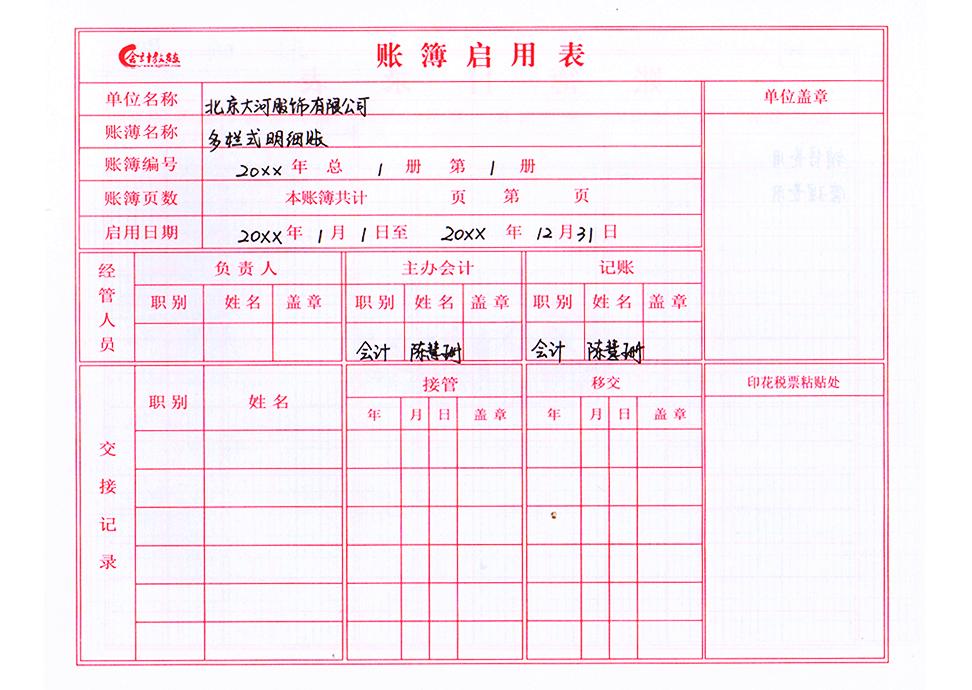 会计教练
账簿启用表
单位名称 北京大河服饰有限公司 单位盖章
账薄名称 多栏式明细账
账簿编号 20XX 年 总 1 册 第 1 册
账簿页数 本账簿共计 页 第 页
启用日期 20XX 年 1 月 1 日至 20XX 年 12 月 31 日
经管人员 负责人 主办会计 记账
职别 姓名 盖章 职别 姓名 盖章 职别 姓名 盖章
会计 陈慧珊 会计 陈慧珊
交接记录 职别 姓名 接管 移交 印花税票粘贴处
年 月 日 盖章 年 月 日 盖章